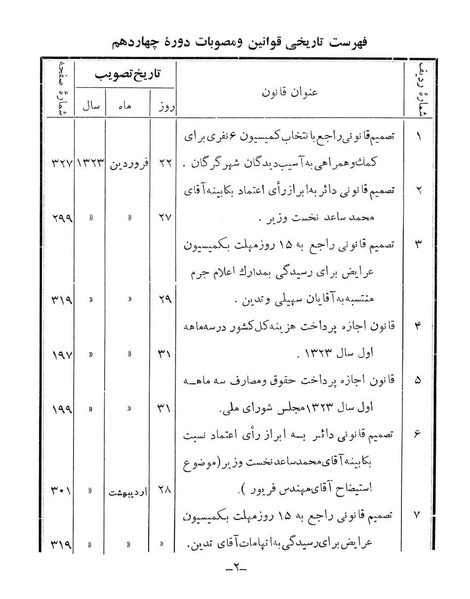 فهرست تاریخی قوانین ومصوبات دورهٔ چهاردهم
شمارهٔ ردیف عنوان قانون تاریخ تصویب شمارهٔ صفحه
روز ماه سال
۱ تصمیم قانونی راجع بانتخاب کمیسیون ۶ نفری برای
کمک و همراهی به آسیب دیدگان شهر گرگان . ۲۲ فروردین ۱۳۲۳ ۳۲۷
۲ تصمیم قانونی دائر به ابراز رأی اعتماد بکابینه آقای
محمد ساعد نخست وزیر . ۲۷ » » ۲۹۹
۳ تصمیم قانونی راجع به ۱۵ روز مهلت بکمیسیون
عرایض برای رسیدگی بمدارک اعلام جرم
منتسبه به آقایان سهیلی و تدین . ۲۹ » » ۳۱۹
۴ قانون اجازه پرداخت هزینه کل کشور در سه ماهه
اول سال ۱۳۲۳ . ۳۱ » » ۱۹۷
۵ قانون اجازه پرداخت حقوق و مصارف سه ماهه
اول سال ۱۳۲۳ مجلس شورای ملی. ۳۱ » » ۱۹۹
۶ تصمیم قانونی دائر به ابراز رأی اعتماد نسبت
بکابینه آقای محمد ساعد نخست وزیر (موضوع
استیضاح آقای مهندس فریور ). ۲۸ اردیبهشت » ۳۰۱
۷ تصمیم قانونی راجع به ۱۵ روز مهلت بکمیسیون
عرایض برای رسیدگی به اتهامات آقای تدین. » » » ۳۱۹
–۲–